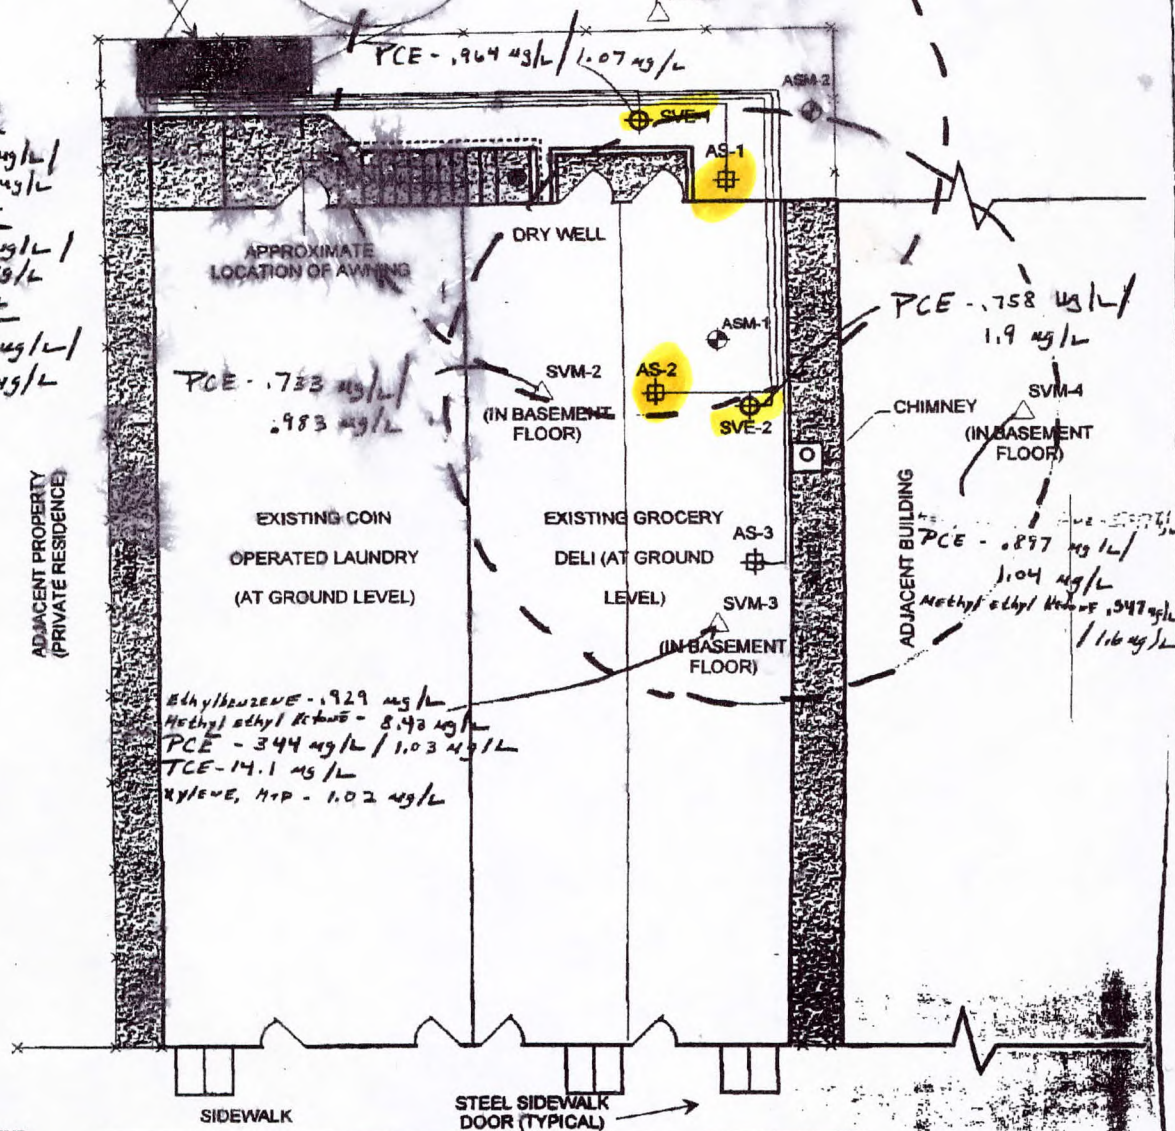 PCE - .964 ug/L / 1.07 ug/L
ASM-2
SVE-1
AS-1
ug/L /
ug/L
DRY WELL
APPROXIMATE
LOCATION OF AWNING
ug/L /
ug/L
PCE - .758 ug/L /
1.9 ug/L
ASM-1
ug/L /
ug/L
PCE - .733 ug/L /
.983 ug/L
SVM-2
(IN BASEMENT
FLOOR)
AS-2
SVE-2
CHIMNEY
SVM-4
(IN BASEMENT
FLOOR)
ADJACENT PROPERTY
(PRIVATE RESIDENCE)
EXISTING COIN
OPERATED LAUNDRY
(AT GROUND LEVEL)
EXISTING GROCERY
DELI (AT GROUND
LEVEL)
AS-3
SVM-3
(IN BASEMENT
FLOOR)
ADJACENT BUILDING
PCE - .897 ug/L /
1.04 ug/L
Methyl ethyl Ketone .547 ug/L
/ 1.6 ug/L
Ethylbenzene - .929 ug/L
Methyl ethyl Ketone - 8.43 ug/L
PCE - 344 ug/L / 1.03 ug/L
TCE - 14.1 ug/L
Xylene, M+P - 1.02 ug/L
SIDEWALK
STEEL SIDEWALK
DOOR (TYPICAL)